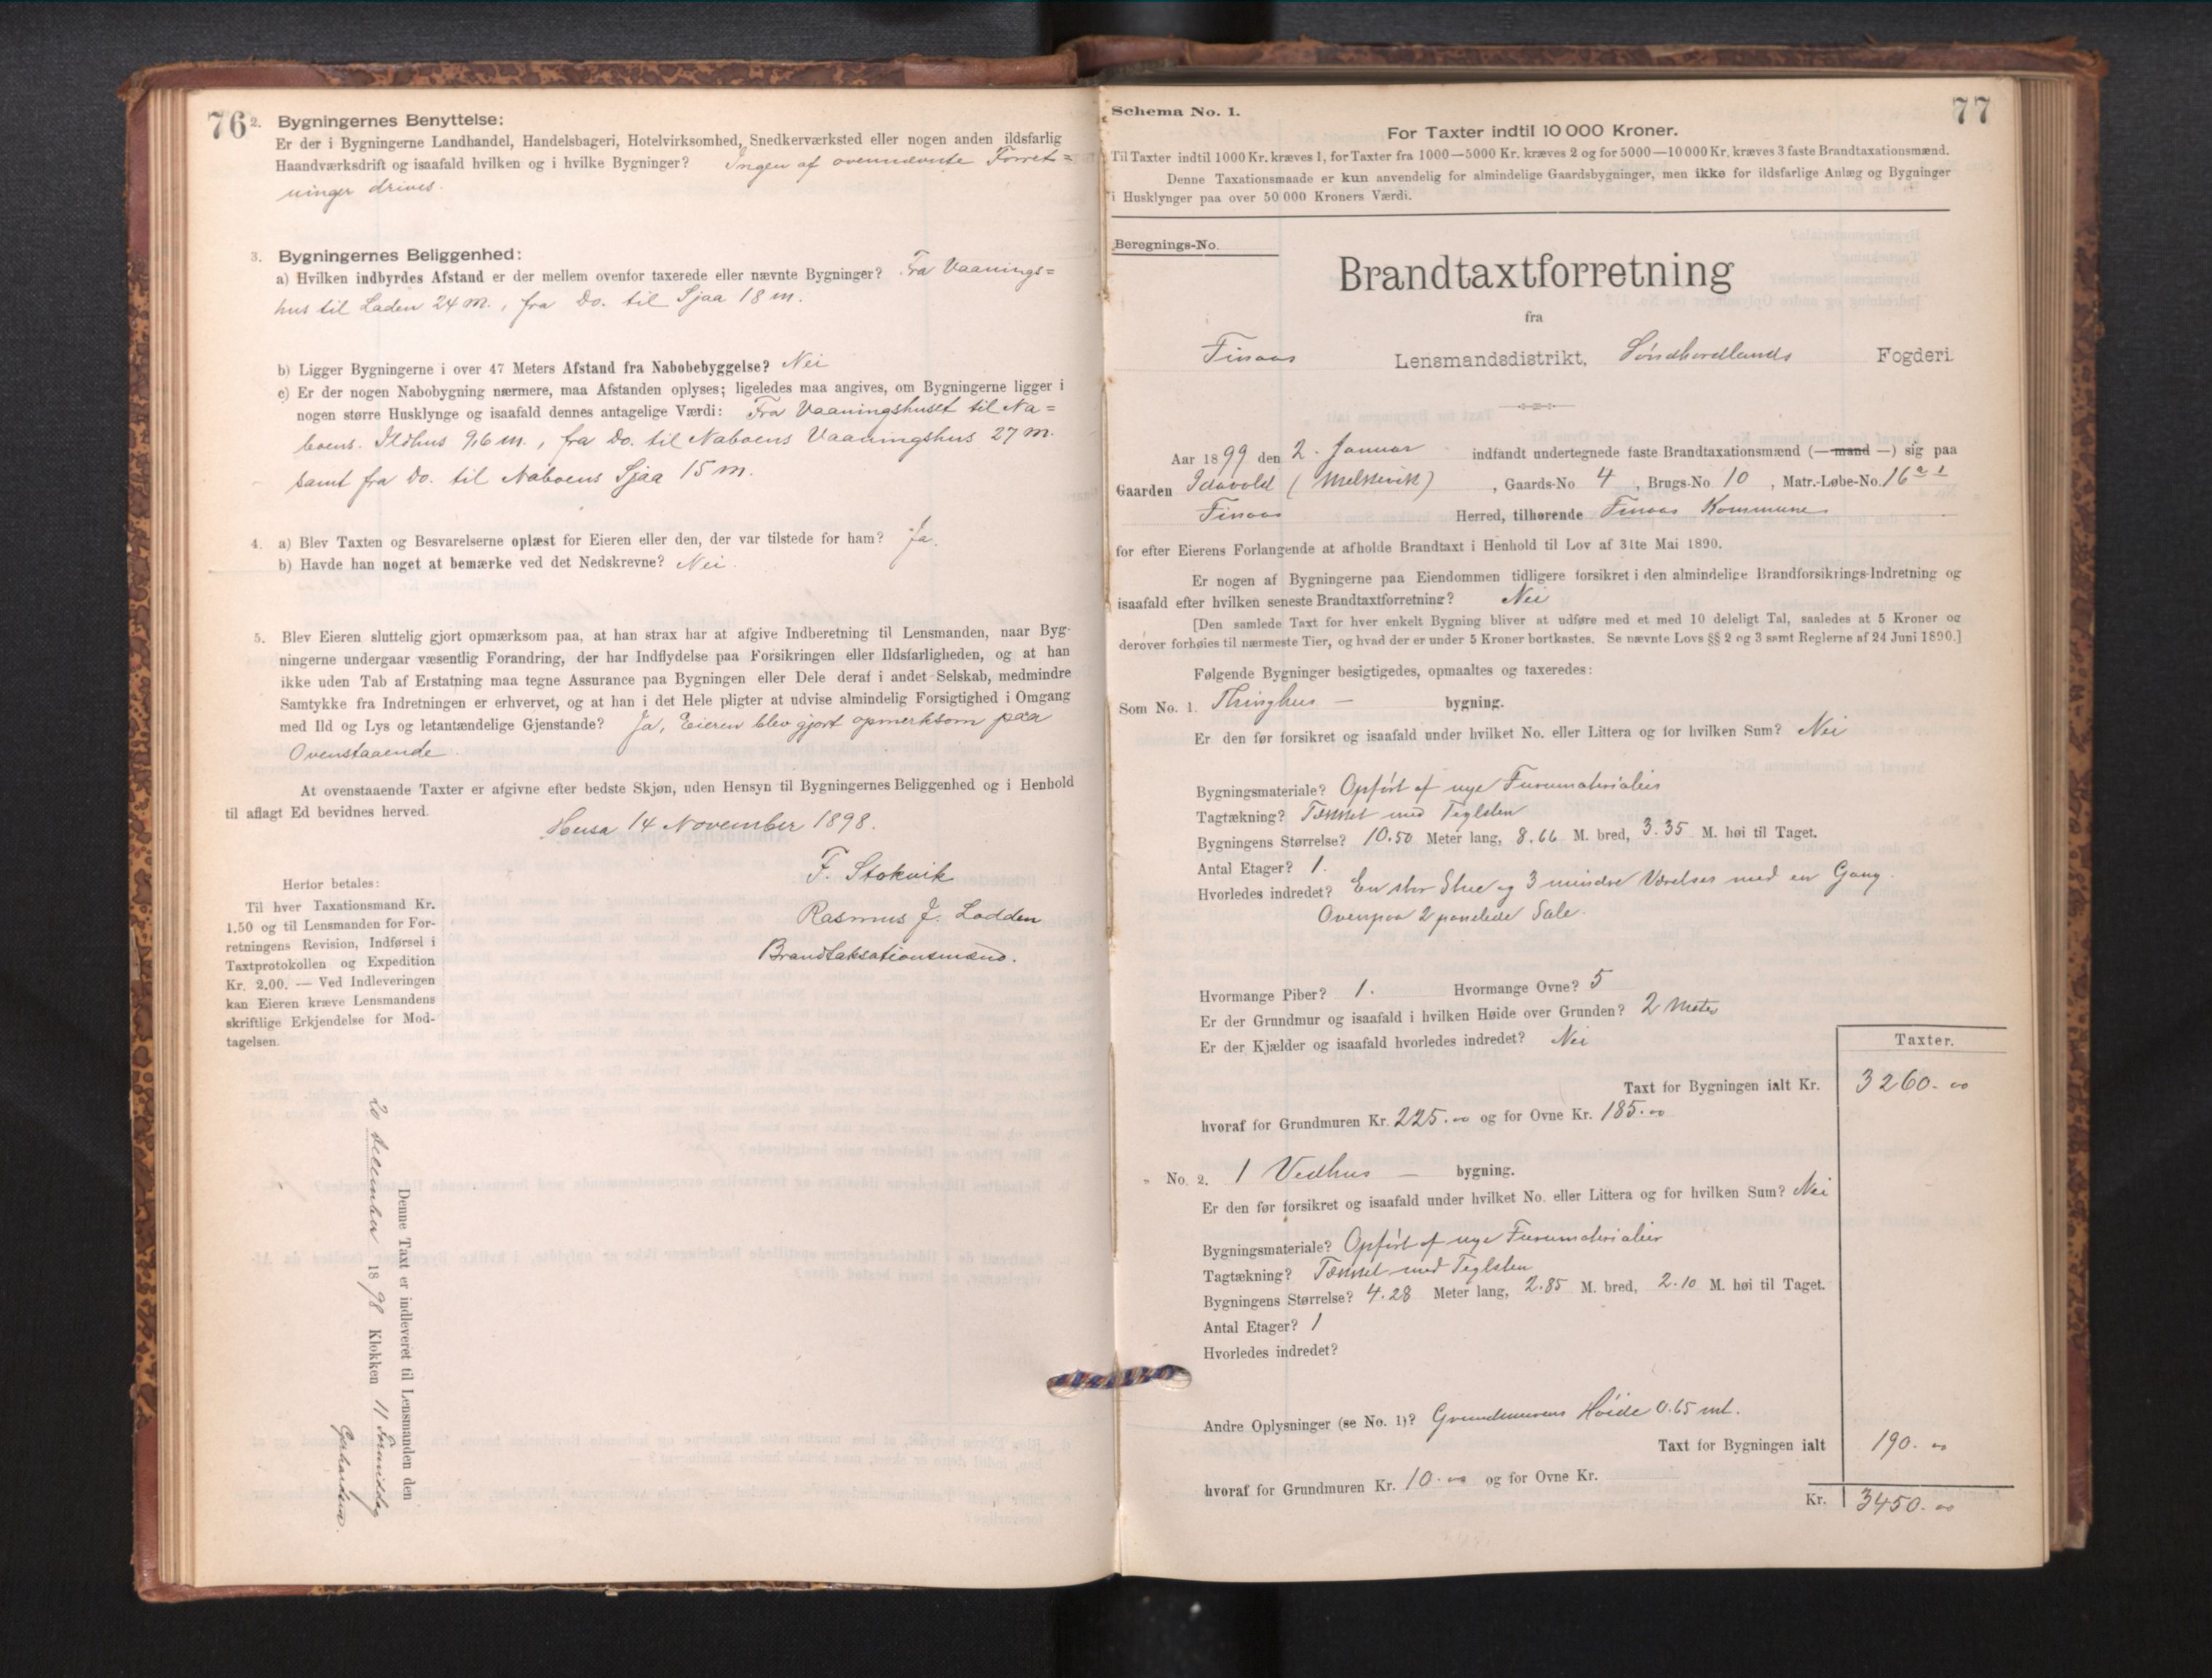 76
2. Bygningernes Benyttelse:
Er der i Bygningerne Landhandel, Handelsbageri, Hotelvirksomhed, Snedkerværksted eller nogen anden ildsfarlig
Haandværksdrift og isaafald hvilken og i hvilke Bygninger? Ingen af ovennævnte Forret=
ninger drives.
3. Bygningernes Beliggenhed:
a) Hvilken indbyrdes Afstand er der mellem ovenfor taxerede eller nævnte Bygninger? Fra Vaanings=
hus til Laden 24 m., fra do. til Sjaa 18 m.
b) Ligger Bygningerne i over 47 Meters Afstand fra Nabobebyggelse? Nei
c) Er der nogen Nabobygning nærmere, maa Afstanden oplyses; ligeledes maa angives, om Bygningerne ligger i
nogen større Husklynge og isaafald dennes antagelige Værdi: Fra Vaaningshuset til Na=
boens Ildhus 9,6 m., fra do. til Naboens Vaaningshus 27 m.
samt fra do. til Naboens Sjaa 15 m.
4. a) Blev Taxten og Besvarelserne oplæst for Eieren eller den, der var tilstede for ham? Ja.
b) Havde han noget at bemærke ved det Nedskrevne? Nei.
5. Blev Eieren sluttelig gjort opmærksom paa, at han strax har at afgive Indberetning til Lensmanden, naar Byg-
ningerne undergaar væsentlig Forandring, der har Indflydelse paa Forsikringen eller Ildsfarligheden, og at han
ikke uden Tab af Erstatning maa tegne Assurance paa Bygningen eller Dele deraf i andet Selskab, medmindre
Samtykke fra Indretningen er erhvervet, og at han i det Hele pligter at udvise almindelig Forsigtighed i Omgang
med Ild og Lys og letantændelige Gjenstande? Ja, Eieren blev gjort opmerksom paa
Ovenstaaende
At ovenstaaende Taxter er afgivne efter bedste Skjøn, uden Hensyn til Bygningernes Beliggenhed og i Henhold
til aflagt Ed bevidnes herved.
Husa 14 November 1898.
F. Stokvik
Rasmus J. Lodden
Brandtaksationsmænd.
Herfor betales:
Til hver Taxationsmand Kr.
1.50 og til Lensmanden for For-
retningens Revision, Indførsel i
Taxtprotokollen og Expedition
Kr. 2.00. — Ved Indleveringen
kan Eieren kræve Lensmandens
skriftlige Erkjendelse for Mod-
tagelsen.
Denne Taxt er indleveret til Lensmanden den
20 December 1898 Klokken 11 Formiddag
77
Schema No. 1.
For Taxter indtil 10 000 Kroner.
Til Taxter indtil 1000 Kr. kræves 1, for Taxter fra 1000—5000 Kr. kræves 2 og for 5000—10 000 Kr. kræves 3 faste Brandtaxationsmænd.
Denne Taxationsmaade er kun anvendelig for almindelige Gaardsbygninger, men ikke for ildsfarlige Anlæg og Bygninger
i Husklynger paa over 50 000 Kroners Værdi.
Beregnings-No.
Brandtaxtforretning
fra
Finaas Lensmandsdistrikt, Søndhordlands Fogderi.
Aar 1899 den 2. Januar indfandt undertegnede faste Brandtaxationsmænd (—mand—) sig paa
Gaarden Idavold (Melkevik), Gaards-No 4, Brugs-No. 10, Matr.-Løbe-No. 16 a 1
Finaas Herred, tilhørende Finaas Kommune
for efter Eierens Forlangende at afholde Brandtaxt i Henhold til Lov af 31te Mai 1890.
Er nogen af Bygningerne paa Eiendommen tidligere forsikret i den almindelige Brandforsikrings-Indretning og
isaafald efter hvilken seneste Brandtaxtforretning? Nei
[Den samlede Taxt for hver enkelt Bygning bliver at udføre med et med 10 deleligt Tal, saaledes at 5 Kroner og
derover forhøies til nærmeste Tier, og hvad der er under 5 Kroner bortkastes. Se nævnte Lovs §§ 2 og 3 samt Reglerne af 24 Juni 1890.]
Følgende Bygninger besigtigedes, opmaaltes og taxeredes:
Som No. 1. Thinghus — bygning.
Er den før forsikret og isaafald under hvilket No. eller Littera og for hvilken Sum? Nei
Bygningsmateriale? Opført af nye Furumaterialier
Tagtækning? Tækket med Teglsten
Bygningens Størrelse? 10.50 Meter lang, 8.66 M. bred, 3.35 M. høi til Taget.
Antal Etager? 1.
Hvorledes indredet? En stor Stue og 3 mindre Værelser med en Gang.
Ovenpaa 2 panelede Sale.
Hvormange Piber? 1. Hvormange Ovne? 5
Er der Grundmur og isaafald i hvilken Høide over Grunden? 2 Meter
Er der Kjælder og isaafald hvorledes indredet? Nei
Taxter.
Taxt for Bygningen ialt Kr. 3260.00
hvoraf for Grundmuren Kr. 225.00 og for Ovne Kr. 185.00
" No. 2. 1 Vedhus — bygning.
Er den før forsikret og isaafald under hvilket No. eller Littera og for hvilken Sum? Nei
Bygningsmateriale? Opført af nye Furumaterialier
Tagtækning? Tækket med Teglsten
Bygningens Størrelse? 4.28 Meter lang, 2.85 M. bred, 2.10 M. høi til Taget.
Antal Etager? 1
Hvorledes indredet?
Andre Oplysninger (se No. 1)? Grundmurens Høide 0.65 mt.
Taxt for Bygningen ialt 190.00
hvoraf for Grundmuren Kr. 10.00 og for Ovne Kr.
Kr. 3450.00